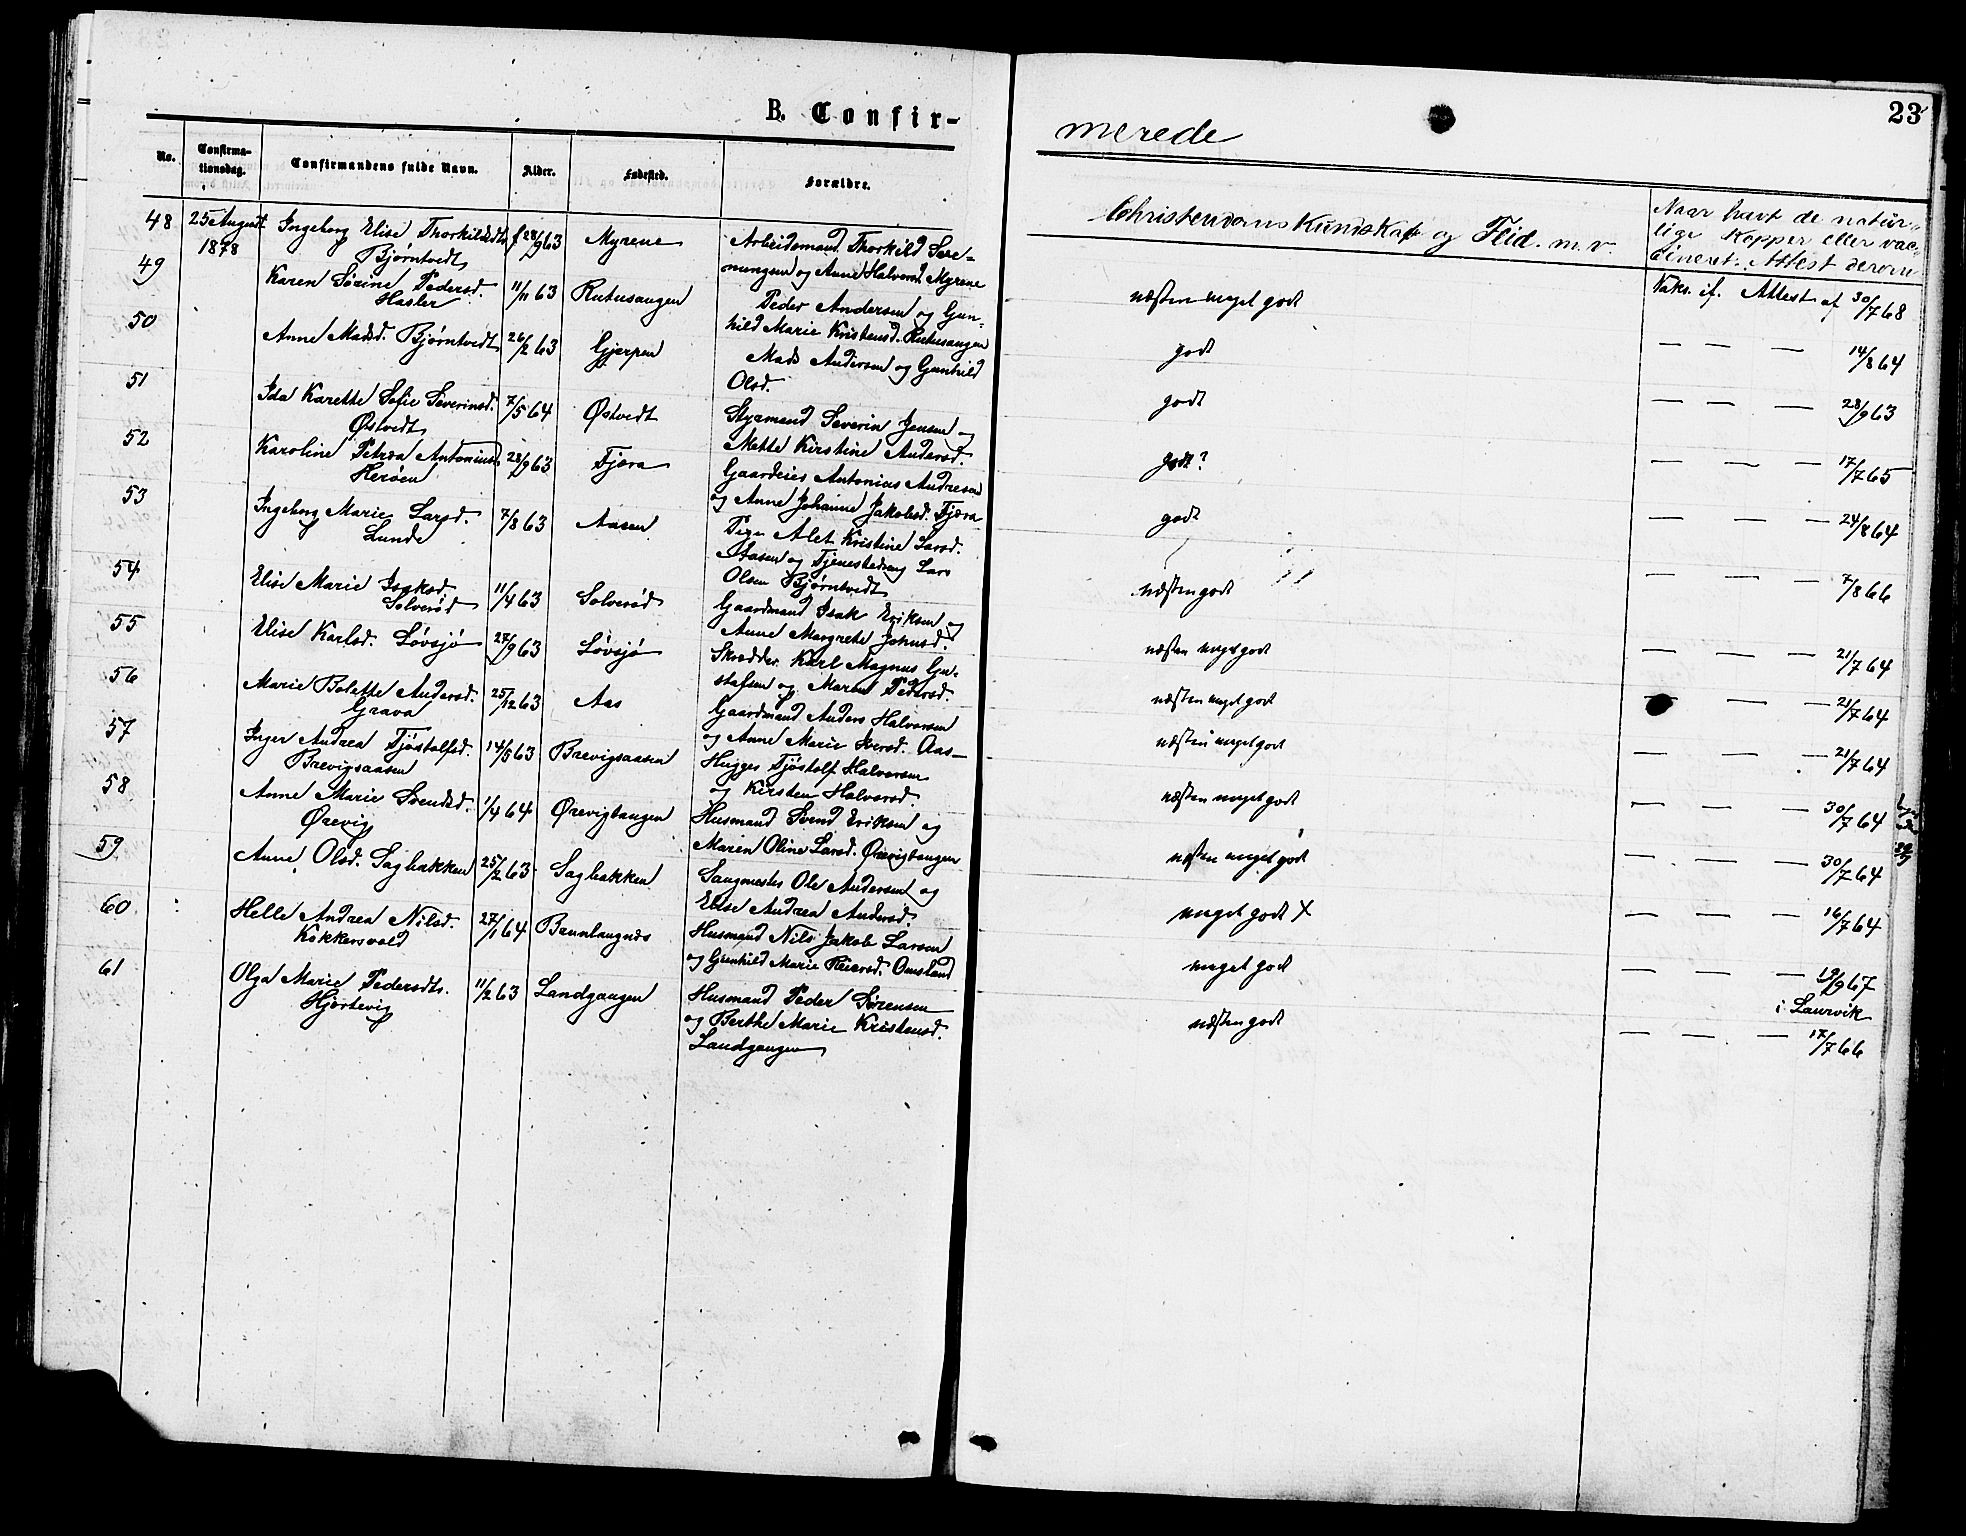 B. Confir-
merede
23
No.
Confirma-
tionsdag.
Confirmandens fulde Navn.
Alder.
Fødested.
Forældre.
Christendomskundskab og Flid. m. v.
Naar havt de natür-
lige Kopper eller vac-
cineret. Attest derom
48 25 August Ingeborg Elise Thorkildsdt. f 28/9 63 Myrene Arbeidsmand Thorkild Sere-
1878 Bjørntvedt nungsen og Anne Halvorsd. Myrene
næsten meget godt Vaks. if. Attest af 30/7 68
49 Karen Sørine Pedersd. 11/11 63 Rutusaugen Peder Andersen og Gun-
Hasler hild Marie Kristensd. Rutusaugen
godt — — — 14/8 64
50 Anne Madsd. Bjørntvedt 26/2 63 Gjerpen Mads Andersen og Gunhild
Olsd.
godt — — — 28/9 63
51 Ida Karette Sofie Severinsd. 7/5 64 Østvedt Styrmand Severin Jensen og
Østvedt Mette Kirstine Andersd.
godt? — — — 17/7 65
52 Karoline Petrea Antoniusd. 28/9 63 Fjæra Gaardeier Antonius Andresen
Herøen og Anne Johanne Jakobsd. Fjæra
godt — — — 24/8 64
53 Ingeborg Marie Larsd. 7/8 63 Aasen Pige Alet Kristine Larsd.
Lunde Aasen og Tjenestedreng Lars
Olsen Bjørntvedt
næsten godt — — — 7/8 66
54 Elise Marie Isaksd. 11/4 63 Solverød Gaardmand Isak Eriksen og
Solverød Anne Margrethe Johnsd.
næsten meget godt — — — 21/7 64
55 Elise Karlsd. Løvsjø 27/9 63 Løvsjø Skrædder Karl Magnus Gu-
stafsen og Maren Pedersd.
næsten meget godt — — — 21/7 64
56 Marie Bolette Andersd. 25/12 63 Aas Gaardmand Anders Halvorsen
Grava og Anne Marie Iversd. Aas
næsten meget godt — — — 21/7 64
57 Inger Andrea Tjøstolfsd. 14/5 63 Brevigsaasen Hugger Tjøstolf Halvorsen
Brevigsaasen og Kirsten Halvorsd.
næsten meget godt — — — 30/7 64
58 Anne Marie Svendsd. 1/4 64 Ørevigtangen Husmand Svend Eriksen og
Ørevig Maren Oline Larsd. Ørevigtangen
næsten meget godt — — — 30/7 64
59 Anne Olsd. Sagbakken 25/2 63 Sagbakken Saugmester Ole Andersen og
Elise Andrea Andersd.
meget godt X — — — 16/7 64
60 Helle Andrea Nilsd. 27/1 64 Husmand Nils Jakob Larsen
Kokkersvold og Gunhild Marie Omsland
meget godt — — — 19/9 67
i Laurvik
61 Olga Marie Pedersdtr. 11/2 63 Landgangen Husmand Peder Sørensen
Hjørtevig og Berthe Marie Kristensd.
Landgangen
næsten godt — — — 17/7 66